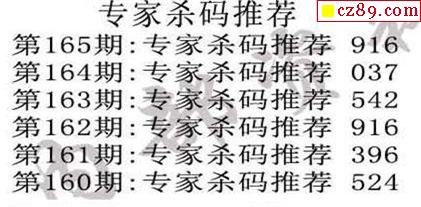 cz89.com
专家杀码推荐
第165期:专家杀码推荐 916
第164期:专家杀码推荐 037
第163期:专家杀码推荐 542
第162期:专家杀码推荐 916
第161期:专家杀码推荐 396
第160期:专家杀码推荐 524